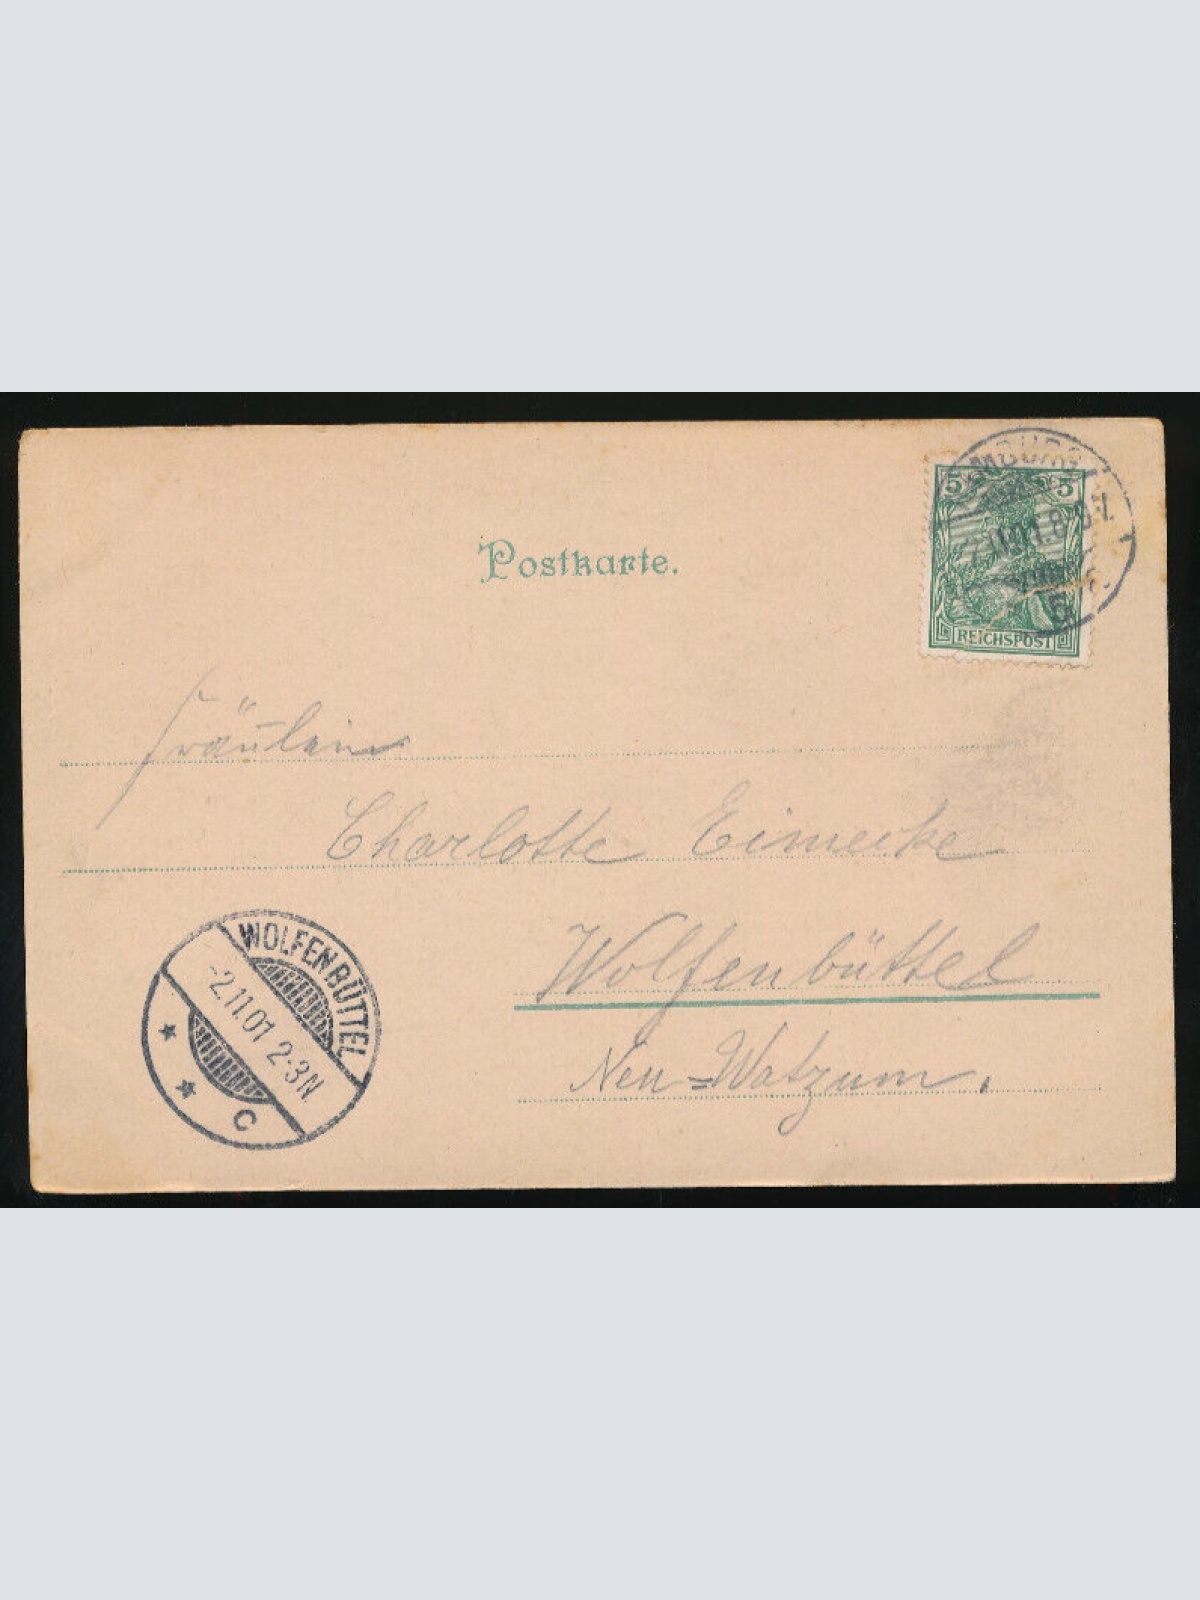 Postkarte.
5 5
REICHSPOST
Fräulein
Charlotte Eimecke
Wolfenbüttel
Neu=Watzum.
WOLFENBÜTTEL
-2.11.01 2-3N
* * C